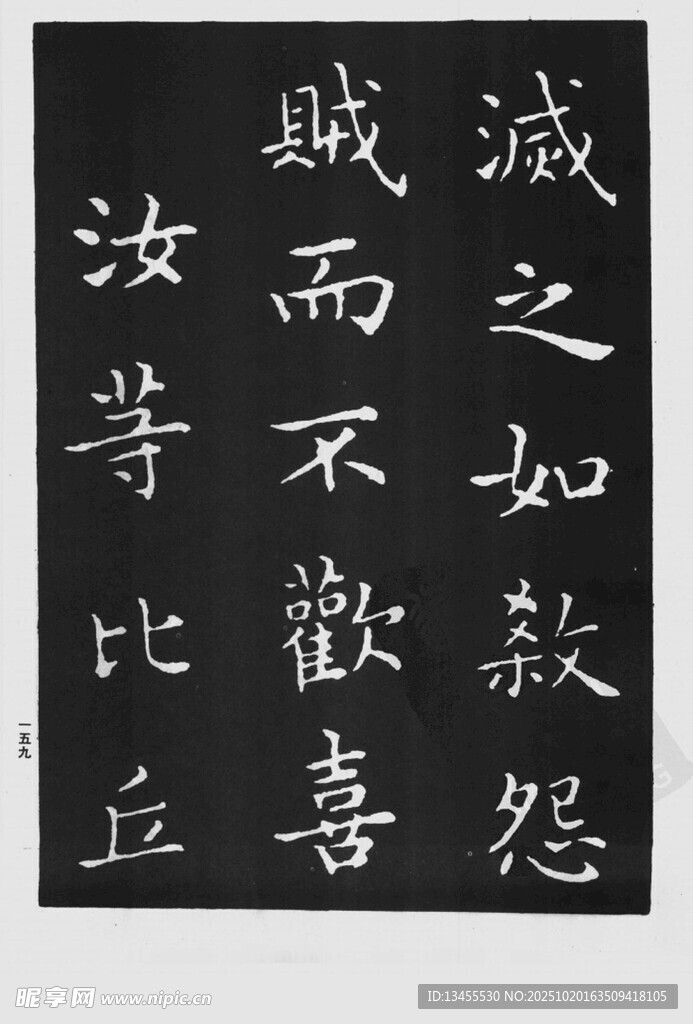 滅之如殺怨
賊而不歡喜
汝等比丘
一五九
昵享网 www.nipic.cn
ID:13455530 NO:20251020163509418105